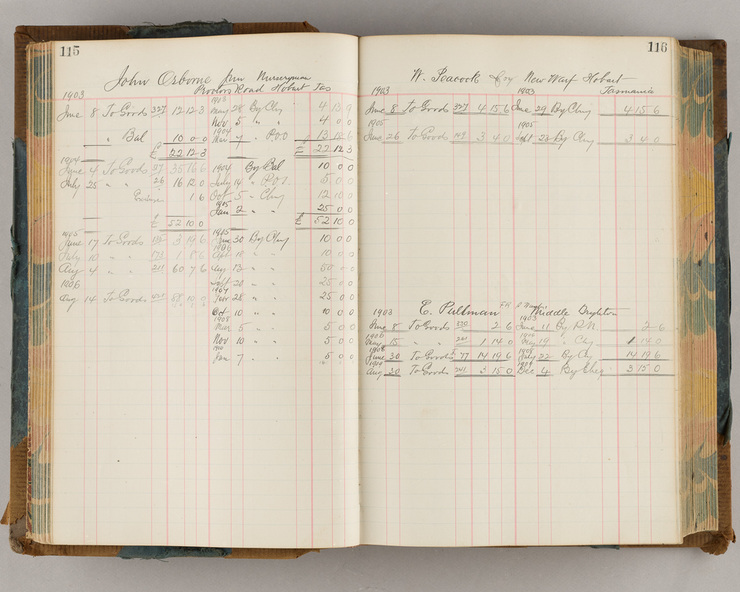 115
John Osborne Junr Nurseryman
Proctors Road Hobart Tas
1903
June 8 To Goods 327 12 12 3
1903
28 By Chq 4 13 9
Nov 5 " " 4 0 0
" Bal 10 0 0
1904
7 " P.O.O 13 18 6
£ 22 12 3
£ 22 12 3
1904
June 4 To Goods 37 35 16 6
1904 By Bal 10 0 0
July 25 " " 26 16 12 0
July 14 " P.O.O. 5 0 0
1 6
Oct 5 " Chq 12 10 0
1905
Jan 2 " " 25 0 0
£ 52 10 0
£ 52 10 0
1905
June 17 To Goods 3 19 6
1905
June 30 By Chq 10 0 0
July 10 " " 1 8 6
10 0 0
Aug 4 " " 60 7 6
Aug 13 " "
1906
Sept 20 " " 25 0 0
Aug 14 To Goods
1907
28 " " 25 0 0
Oct 10 " " 10 0 0
1908
Mar 5 " " 5 0 0
Nov 10 " " 5 0 0
Jan 7 " " 5 0 0
116
W. Peacock New Warf Hobart
Tasmania
1903
June 8 To Goods 327 4 15 6
1903
June 29 By Chq 4 15 6
1905
June 26 To Goods 3 4 0
1905
Sept 23 By Chq 3 4 0
C. Pullman Middle Brighton
1903
June 8 To Goods 2 6
1903
June 11 By P.N. 2 6
1906
15 " " 1 14 0
19 " Chq 1 14 0
1908
June 30 To Goods 77 14 19 6
1908
July 22 By Chq 14 19 6
1909
Aug 30 To Goods 3 15 0
1909
Dec 4 By Chq 3 15 0